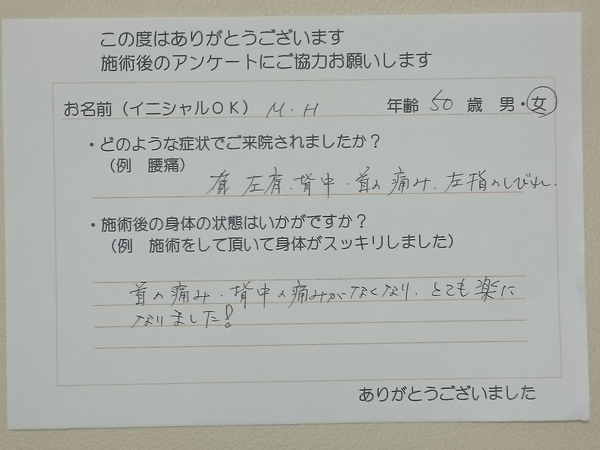 この度はありがとうございます
施術後のアンケートにご協力お願いします
お名前(イニシャルOK) M.H 年齢 50 歳 男・女
・どのような症状でご来院されましたか?
(例 腰痛)
左肩、背中、首の痛み、左指のしびれ、
・施術後の身体の状態はいかがですか?
(例 施術をして頂いて身体がスッキリしました)
首の痛み、背中の痛みがなくなり、とても楽に
なりました!
ありがとうございました